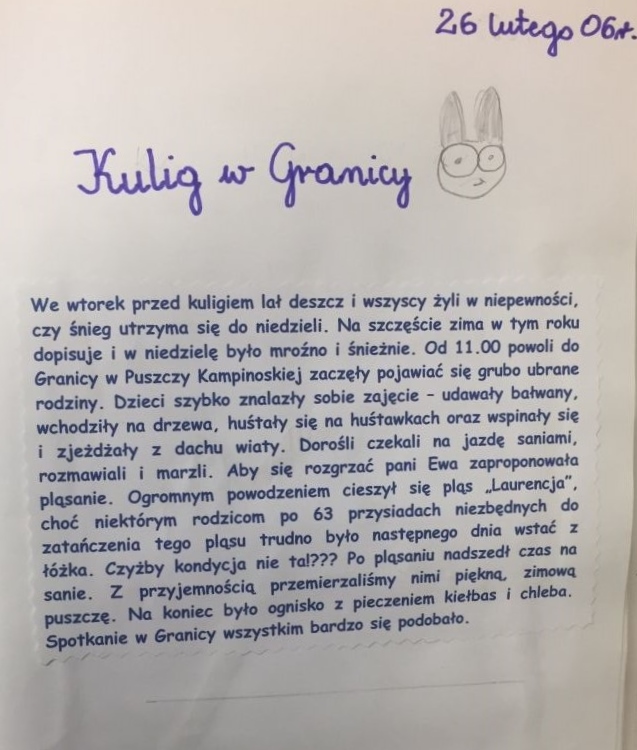 26 lutego 06r.
Kulig w Granicy
We wtorek przed kuligiem lał deszcz i wszyscy żyli w niepewności,
czy śnieg utrzyma się do niedzieli. Na szczęście zima w tym roku
dopisuje i w niedzielę było mroźno i śnieżnie. Od 11.00 powoli do
Granicy w Puszczy Kampinoskiej zaczęły pojawiać się grubo ubrane
rodziny. Dzieci szybko znalazły sobie zajęcie – udawały bałwany,
wchodziły na drzewa, huśtały się na huśtawkach oraz wspinały się
i zjeżdżały z dachu wiaty. Dorośli czekali na jazdę saniami,
rozmawiali i marzli. Aby się rozgrzać pani Ewa zaproponowała
pląsanie. Ogromnym powodzeniem cieszył się pląs „Laurencja",
choć niektórym rodzicom po 63 przysiadach niezbędnych do
zatańczenia tego pląsu trudno było następnego dnia wstać z
łóżka. Czyżby kondycja nie ta!??? Po pląsaniu nadszedł czas na
sanie. Z przyjemnością przemierzaliśmy nimi piękną, zimową
puszczę. Na koniec było ognisko z pieczeniem kiełbas i chleba.
Spotkanie w Granicy wszystkim bardzo się podobało.